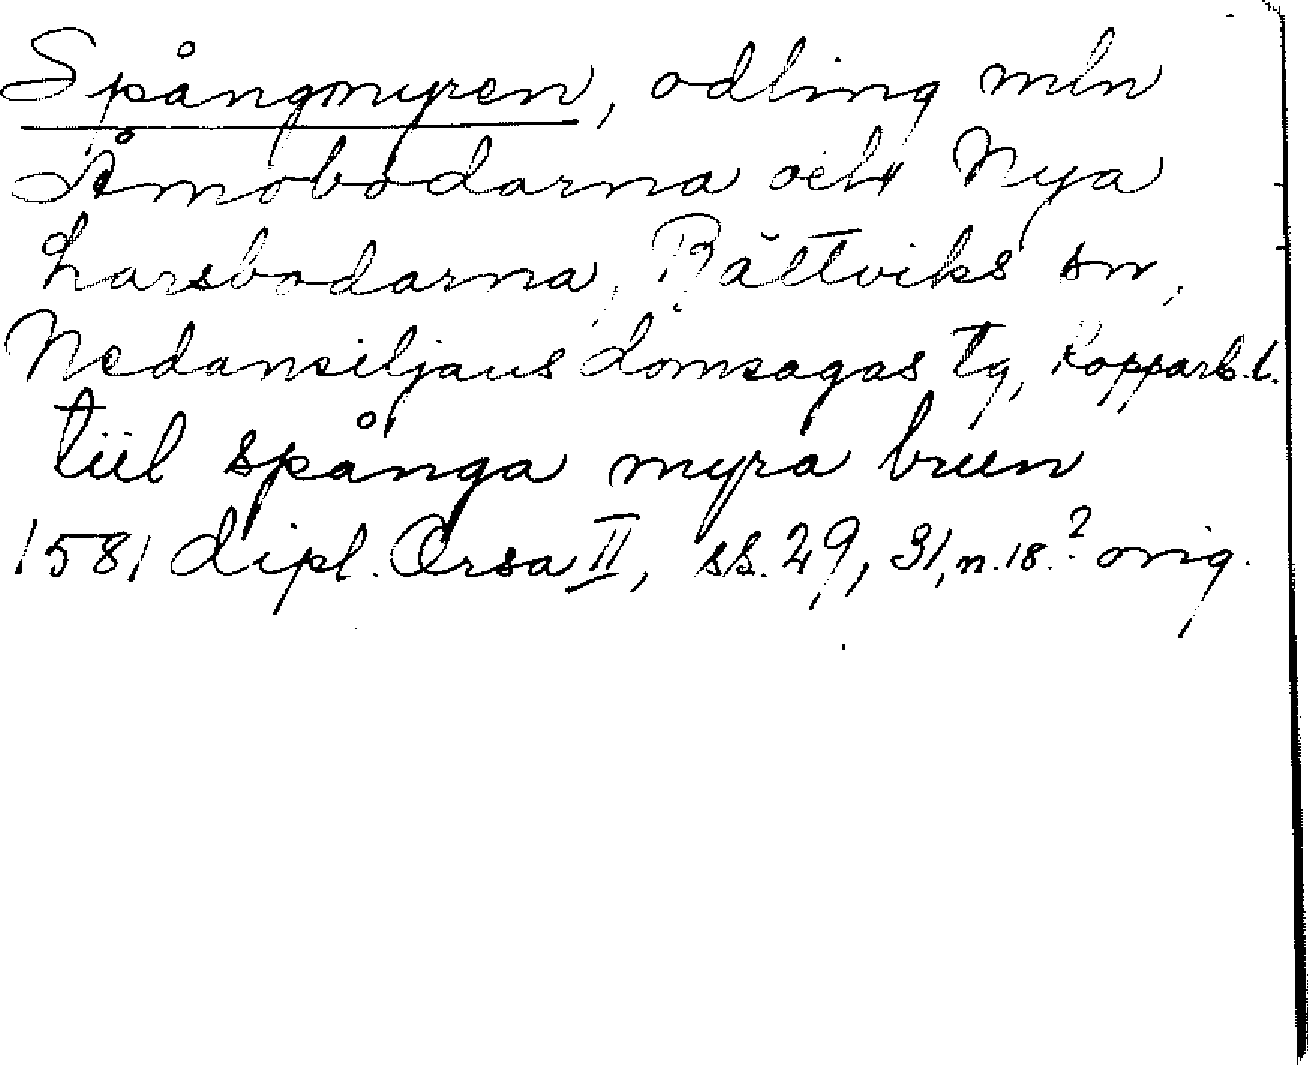 Spångmyren, odling mln
Åmobodarna och Nya
Larsbodarna, Rättviks sn,
Nedansiljans domsagas tg, Kopparb.l.
tiil spånga myra brun
1581 dipl. Orsa II, ss. 29, 31, n. 18.? orig.